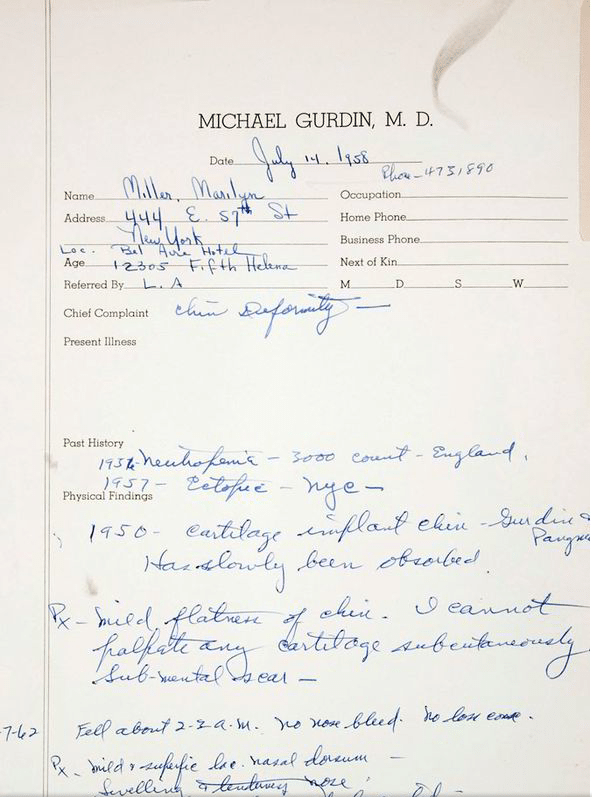 MICHAEL GURDIN, M. D.
Date July 14, 1958
Phone - 4731890
Name Miller, Marilyn Occupation
Address 444 E. 57th St Home Phone
New York Business Phone
Loc. Bel Aire Hotel
Age 12305 Fifth Helena Next of Kin
Referred By L. A M D S W
Chief Complaint Chin Deformity —
Present Illness
Past History
1956 - Neutropenia - 3000 count - England.
1957 - Ectopic - NYC -
Physical Findings
1950 - cartilage implant chin - Gurdin &
Has slowly been absorbed.
Px - Mild flatness of chin. I cannot
palpate any cartilage subcutaneously
Sub-mental scar -
-7-62 Fell about 2-3 a.m. No nose bleed. No loss consc.
Px - Mild & superfic lac. nasal dorsum -
Swelling & tenderness nose